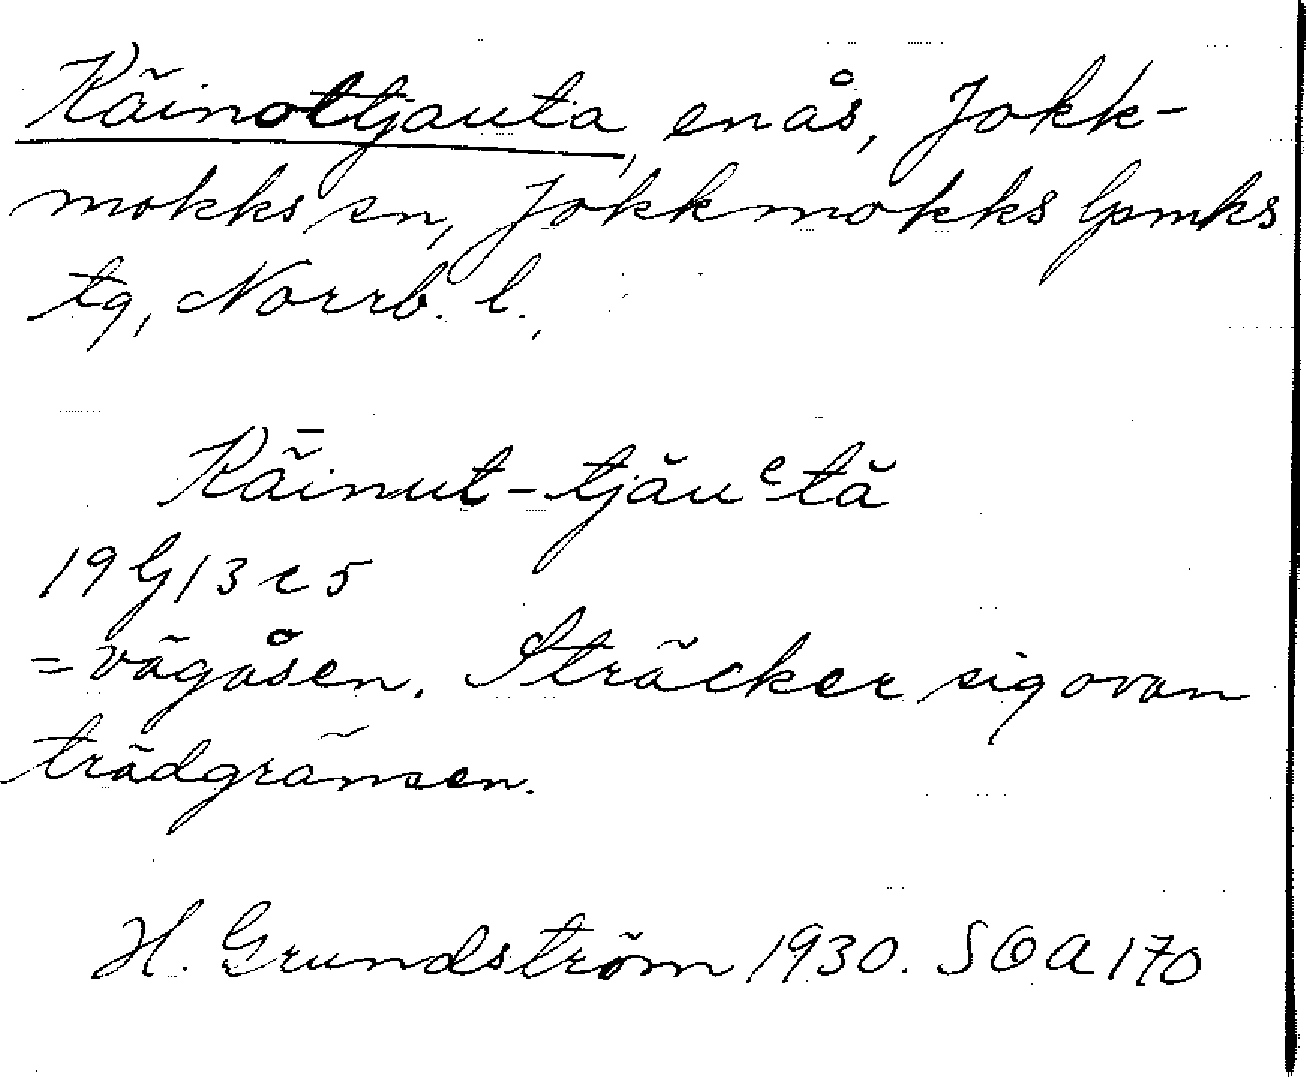 Käinottjauta, en ås, Jokk-
mokks sn, Jokkmokks lpmks
tg, Norrb. l.
Kǟinut-tjåu͑tå
19 G 13 c 5
= vägåsen. Sträcker sig ovan
trädgränsen.
H. Grundström 1930. SOA 170